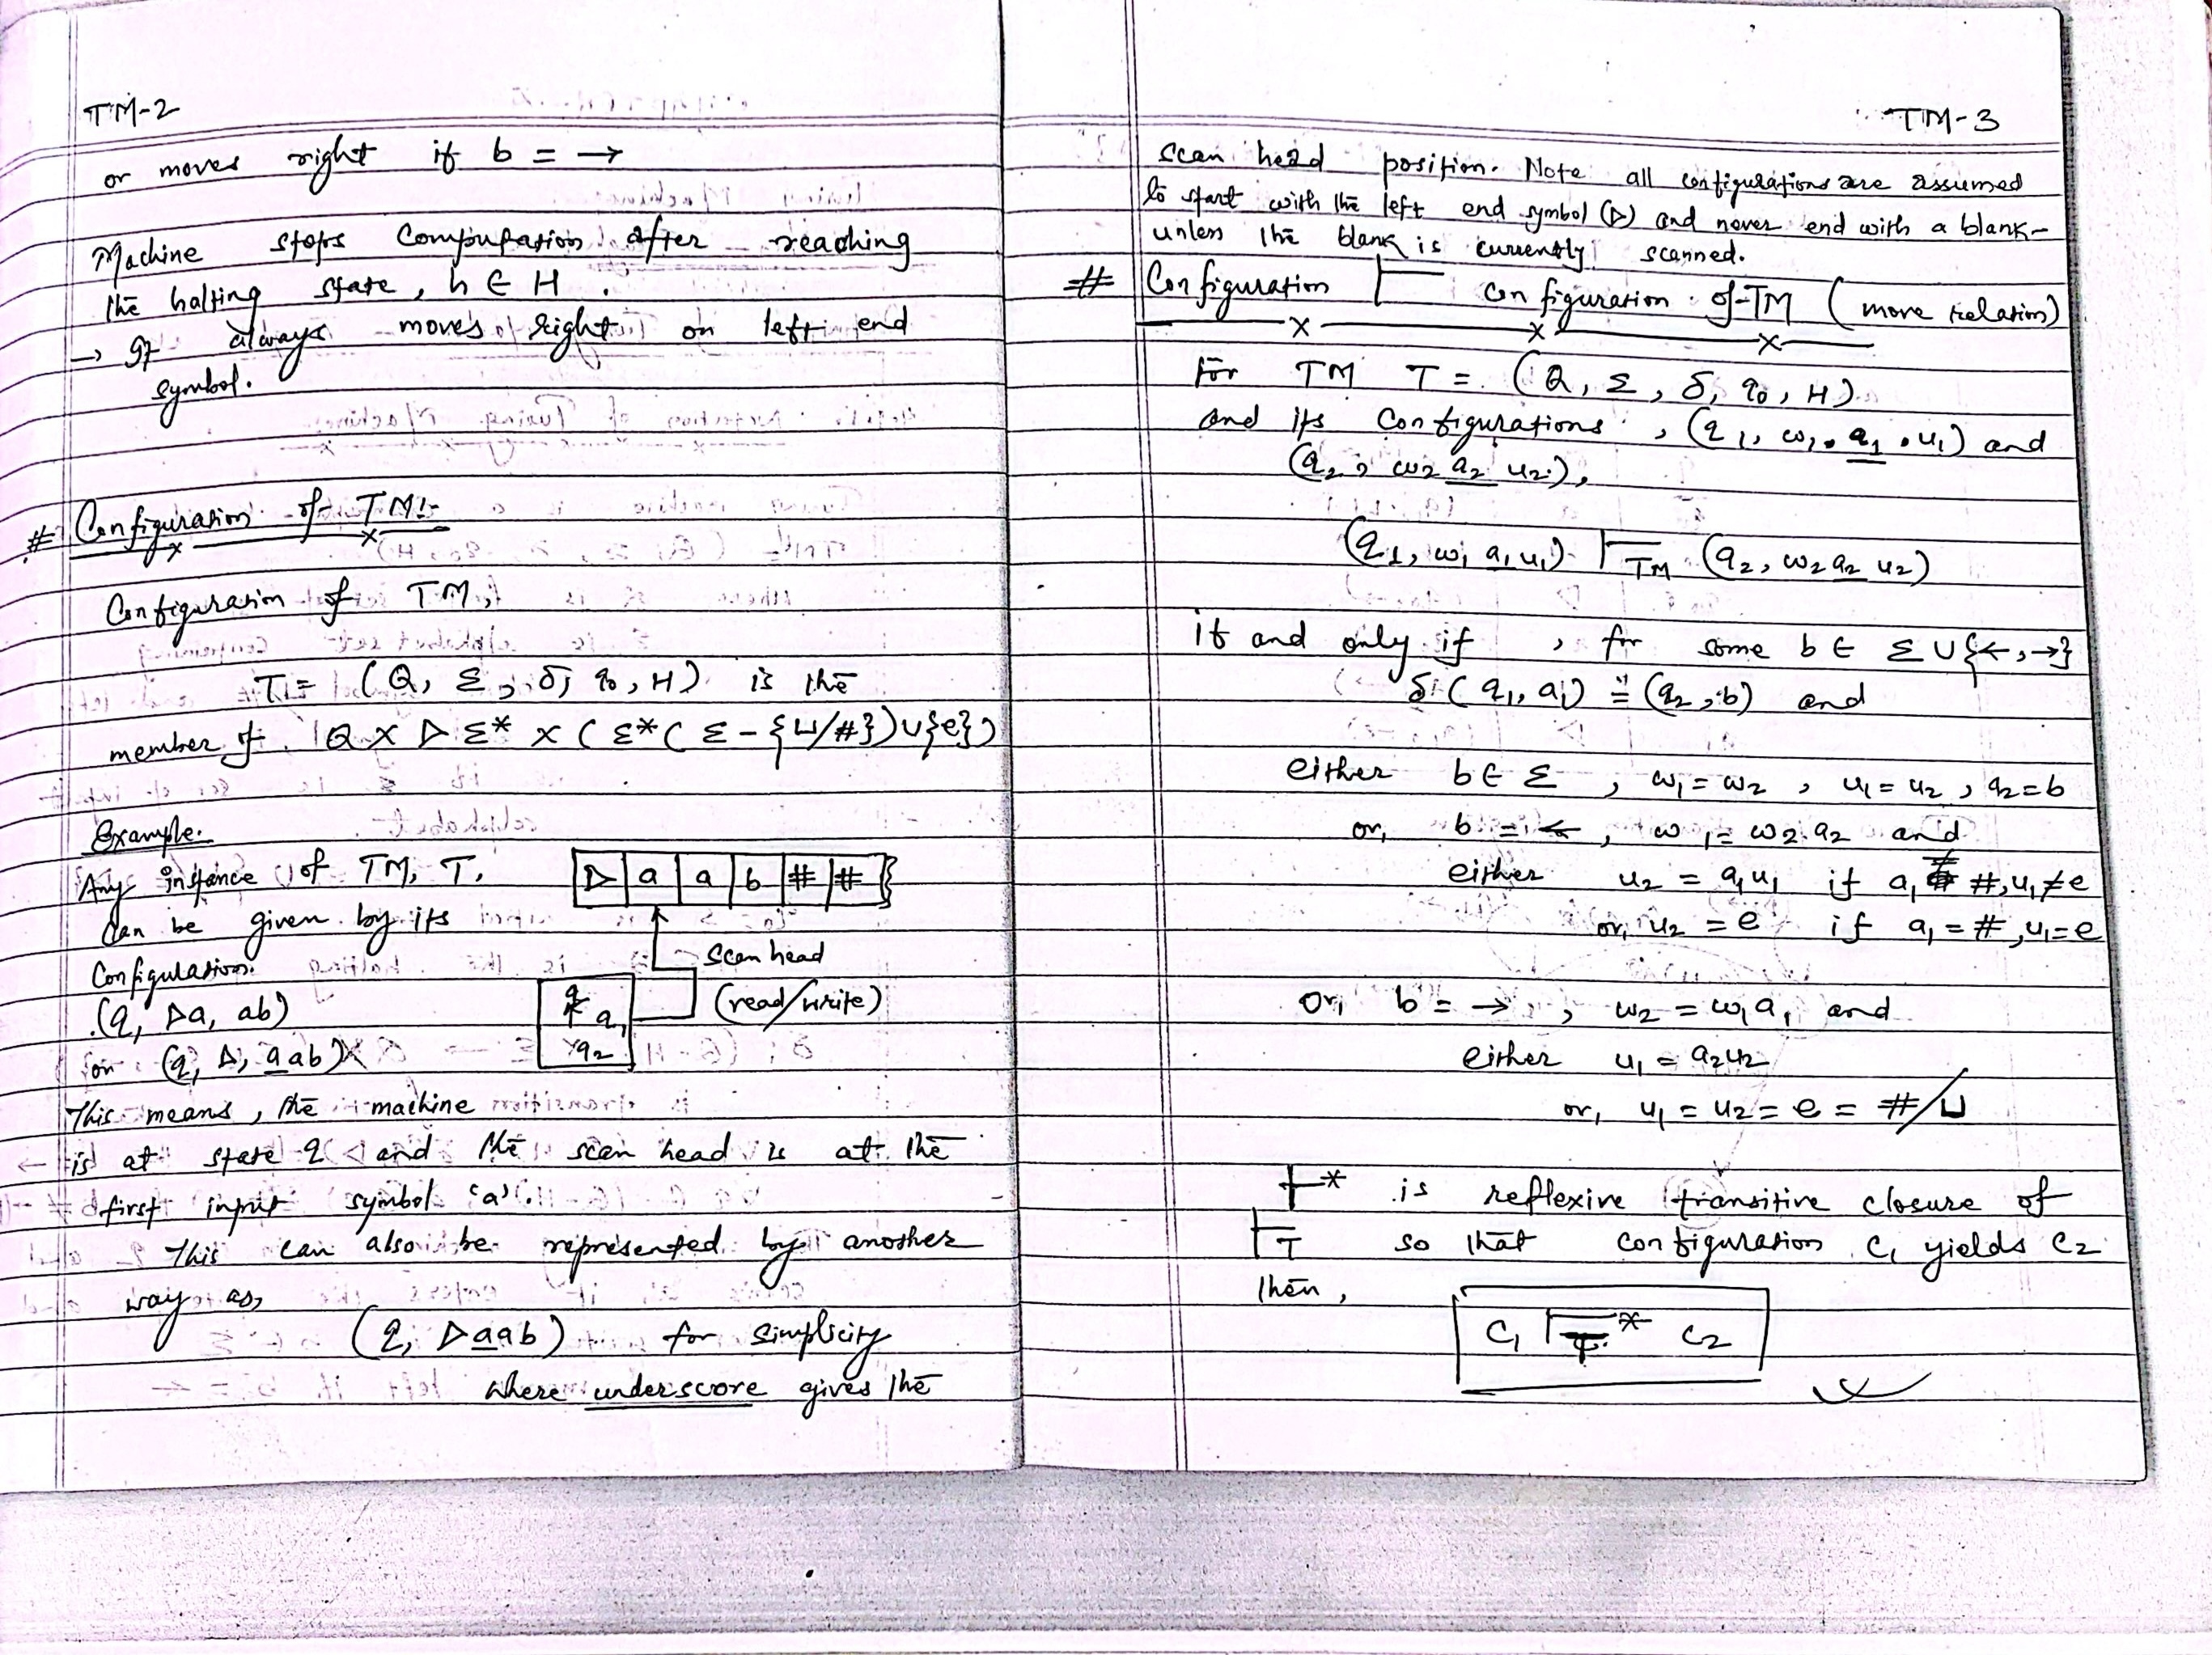 TM-2
or moves right if b = →
Machine stops Computation after reaching
the halting state, h ∈ H.
→ It always moves right on left end
symbol.
# Configuration of TM:-
Configuration of TM,
T = (Q, Σ, δ, q₀, H) is the
member of Q × ▷ Σ* × (Σ*(Σ - {⊔/#}) ∪ {e})
Example:
Any instance of TM, T,
Can be given by its
Configuration.
(q, ▷a, ab)
or (q, ▷, a̲ab) X
▷ a a b # #
Scan head
(read/write)
q
q₁
q₂
This means, the machine
is at state q and the scan head is at the
first input symbol 'a'.
This can also be represented by another
way as,
(q, ▷a̲ab) for simplicity
where underscore gives the
TM-3
scan head position. Note all configurations are assumed
to start with the left end symbol (▷) and never end with a blank-
unless the blank is currently scanned.
# Configuration ⊢ configuration of TM (move relation)
For TM T = (Q, Σ, δ, q₀, H)
and its Configurations, (q₁, w₁.a̲₁.u₁) and
(q₂, w₂ a̲₂ u₂),
(q₁, w₁ a̲₁ u₁) ⊢TM (q₂, w₂ a̲₂ u₂)
if and only if, for some b ∈ Σ ∪ {←, →}
δ(q₁, a₁) = (q₂, b) and
either b ∈ Σ, w₁ = w₂, u₁ = u₂, a₂ = b
or, b = ←, w₁ = w₂.a₂ and
either u₂ = a₁u₁ if a₁ ≠ #, u₁ ≠ e
or, u₂ = e if a₁ = #, u₁ = e
Or, b = →, w₂ = w₁a₁ and
either u₁ = a₂u₂
or, u₁ = u₂ = e = #/⊔
⊢* is reflexive transitive closure of
⊢T so that configuration C₁ yields C₂
then,
C₁ ⊢T* C₂